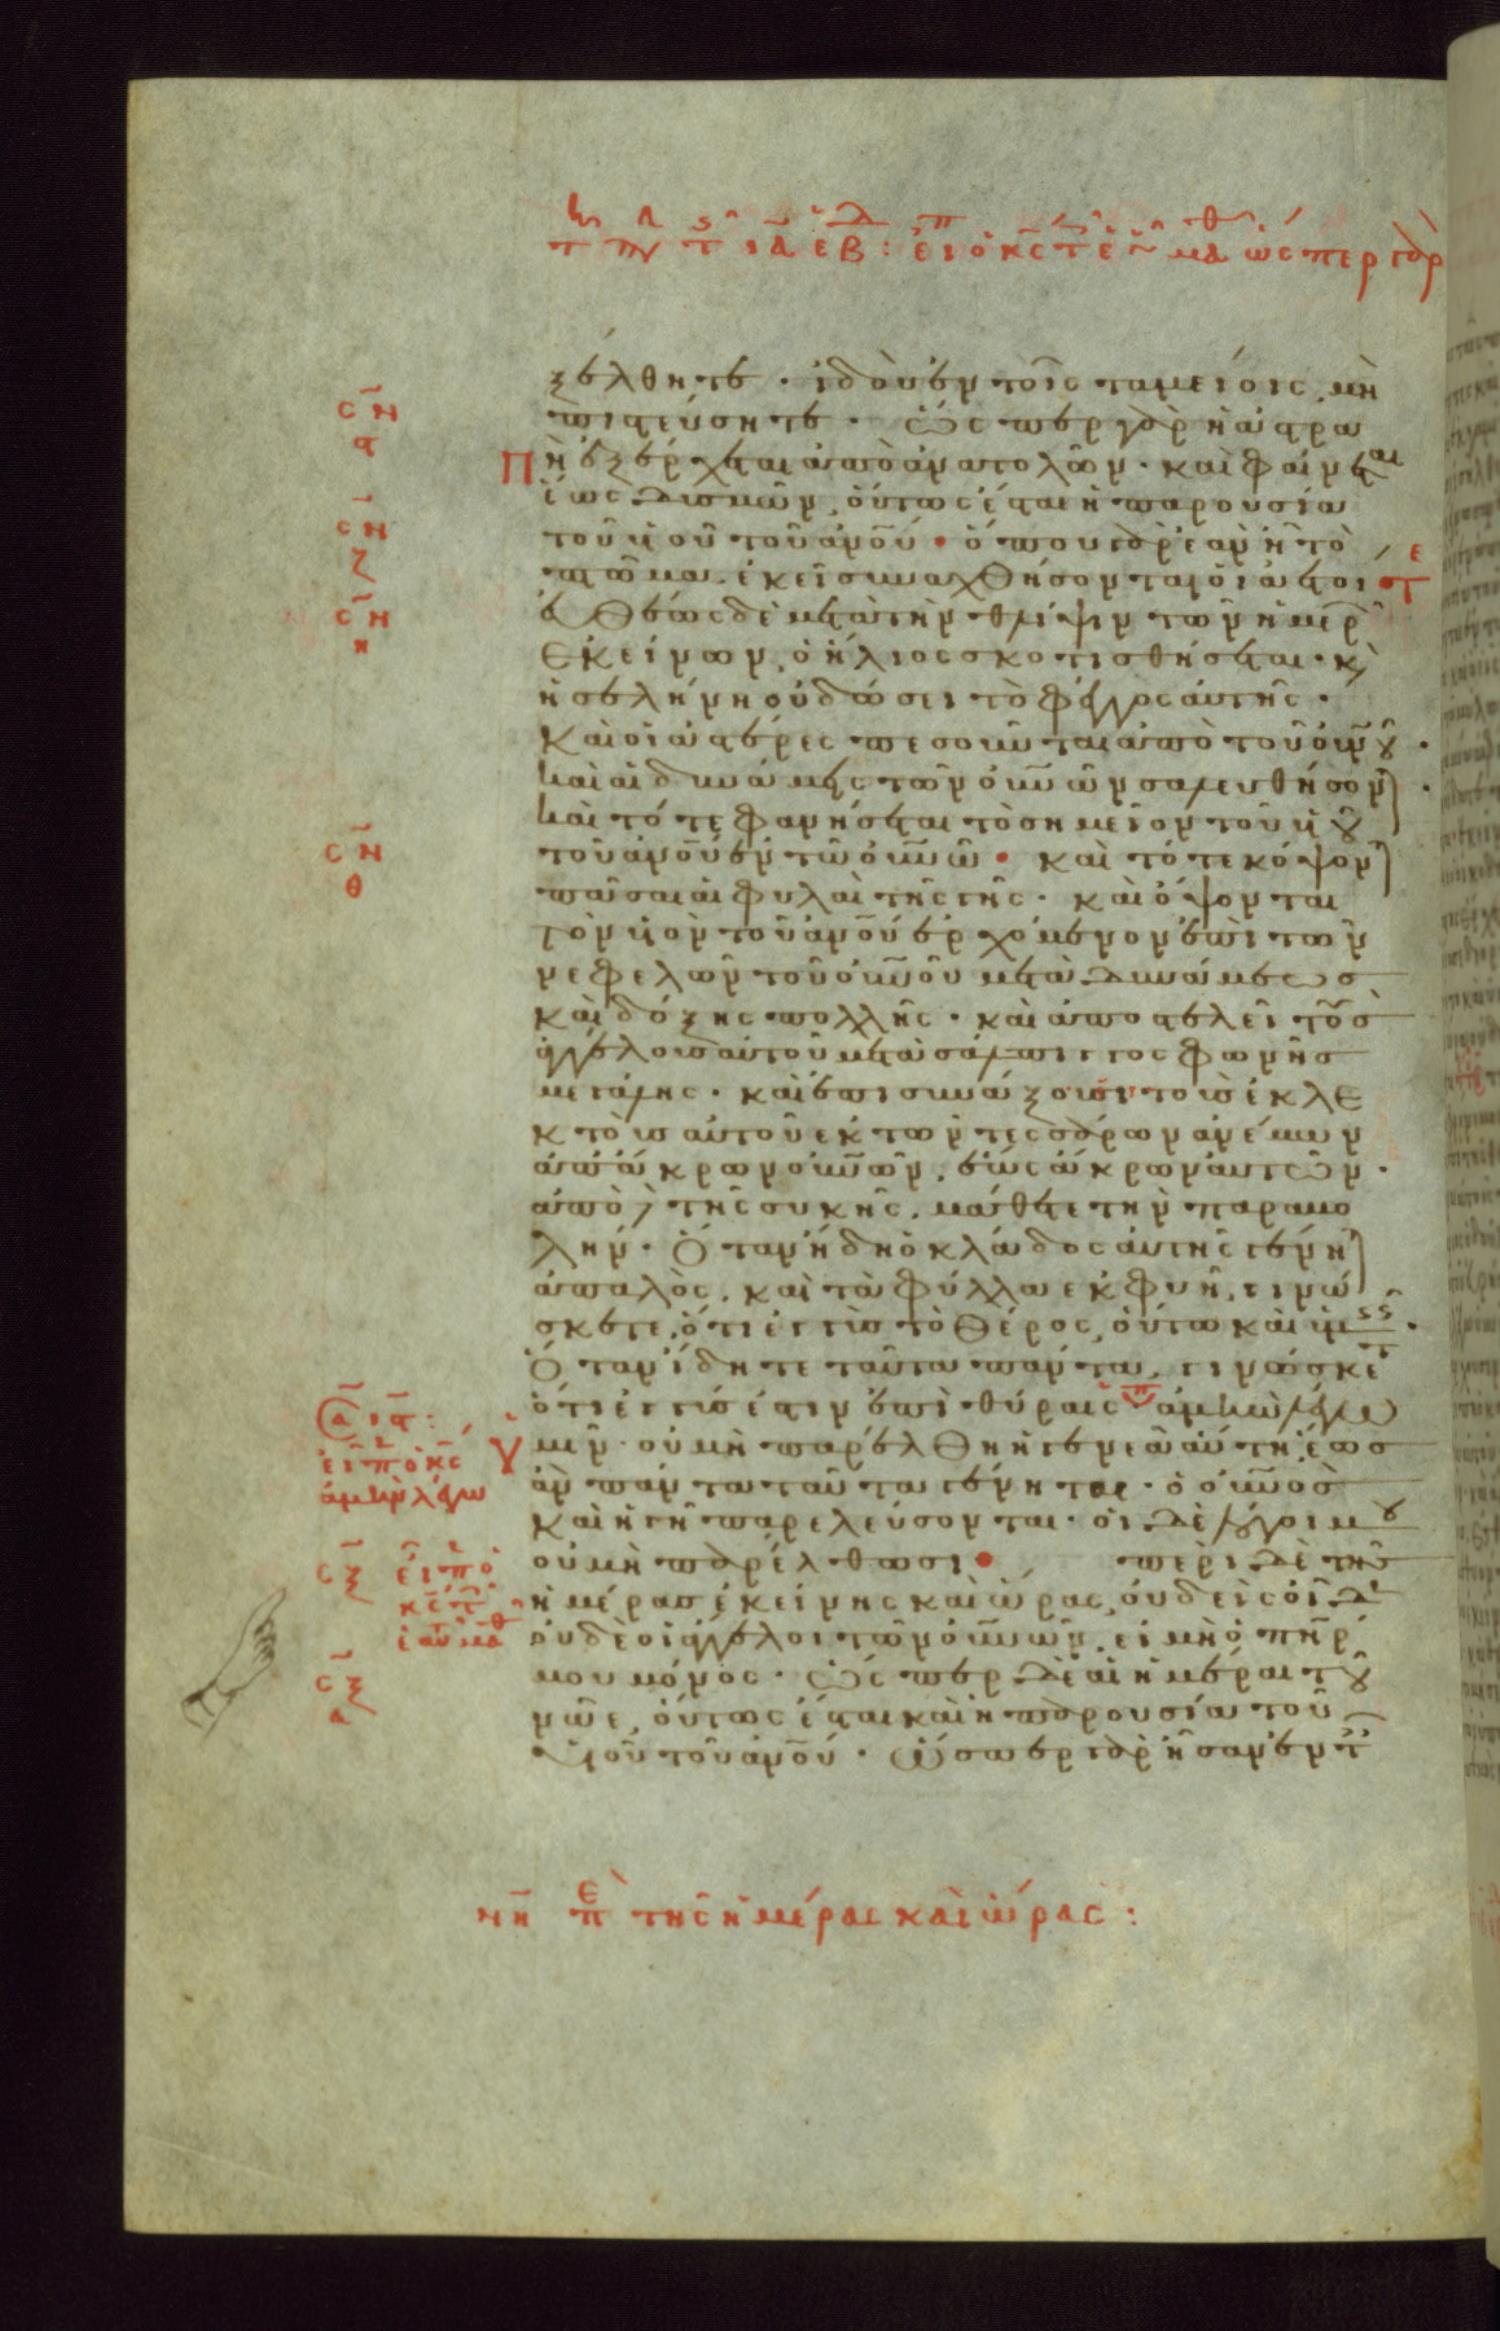 ξέλθητε · ἰδοὺ ἐν τοῖς ταμείοις, μὴ
πιστεύσητε · ὥσπερ γὰρ ἡ ἀστρα
πὴ ἐξέρχεται ἀπὸ ἀνατολῶν · καὶ φαίνεται
ἕως δυσμῶν, οὕτως ἔσται ἡ παρουσία
τοῦ υἱοῦ τοῦ ἀνου · ὅπου γὰρ ἐὰν ῇ τὸ
πτῶμα, ἐκεῖ συναχθήσονται οἱ ἀετοί
εὐθέως δὲ μετὰ τὴν θλίψιν τῶν ἡμερ
ἐκείνων, ὁ ἥλιος σκοτισθήσεται · κ
ἡ σελήνη οὐ δώσει τὸ φέγγος αὐτῆς ·
καὶ οἱ ἀστέρες πεσοῦνται ἀπὸ τοῦ οὐνου ·
καὶ αἱ δυνάμεις τῶν οὐνων σαλευθήσον ·
καὶ τότε φανήσεται τὸ σημεῖον τοῦ υἱοῦ
τοῦ ἀνου ἐν τῶ οὐνω · καὶ τότε κόψον
πᾶσαι αἱ φυλαὶ τῆς γῆς · καὶ ὄψονται
τὸν υἱὸν τοῦ ἀνου ἐρχόμενον ἐπὶ τῶν
νεφελῶν τοῦ οὐνου μετὰ δυνάμεως
καὶ δόξης πολλῆς · καὶ ἀποστελεῖ τοὺς
ἀγγέλους αὐτοῦ μετὰ σάλπιγγος φωνῆς
μεγάλης · καὶ ἐπισυνάξουσι τοὺς ἐκλε
κτοὺς αὐτοῦ ἐκ τῶν τεσσάρων ἀνέμων
ἀπ' ἄκρων οὐνων, ἕως ἄκρων αὐτῶν ·
ἀπὸ δὲ τῆς συκῆς, μάθετε τὴν παραβο
λήν · ὅταν ἤδη ὁ κλάδος αὐτῆς γένη
ἁπαλὸς, καὶ τὰ φύλλα ἐκφύη, γινώ
σκετε, ὅτι ἐγγὺς τὸ θέρος, οὕτω καὶ ὑμεῖς ·
ὅταν ἴδητε ταῦτα πάντα, γινώσκετε
ὅτι ἐγγύς ἐστιν ἐπὶ θύραις · ἀμὴν λέγω
ὑμῖν · οὐ μὴ παρέλθη ἡ γενεὰ αὕτη, ἕως
ἂν πάντα ταῦτα γένηται · ὁ οὐνος
καὶ ἡ γῆ παρελεύσονται · οἱ δὲ λόγοι μου
οὐ μὴ παρέλθωσι · περὶ δὲ τῆς
ἡμέρας ἐκείνης καὶ ὥρας, οὐδεὶς οἶδ
οὐδὲ οἱ ἄγγελοι τῶν οὐνων, εἰ μὴ ὁ πηρ
μου μόνος · ὥσπερ δὲ αἱ ἡμέραι τοῦ
νῶε, οὕτως ἔσται καὶ ἡ παρουσία τοῦ
υἱοῦ τοῦ ἀνου · ὥσπερ γὰρ ἦσαν ἐν τ
νη περ τῆς ἡμέρας καὶ ὥρας :